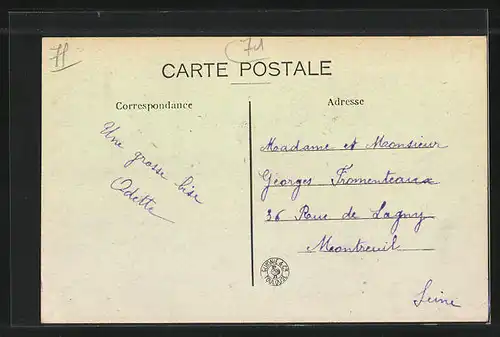 CARTE POSTALE
Correspondance
Adresse
Une grosse bise
Odette
Madame et Monsieur
Georges Fromenteaux
36 Rue de Lagny
Montreuil
Seine